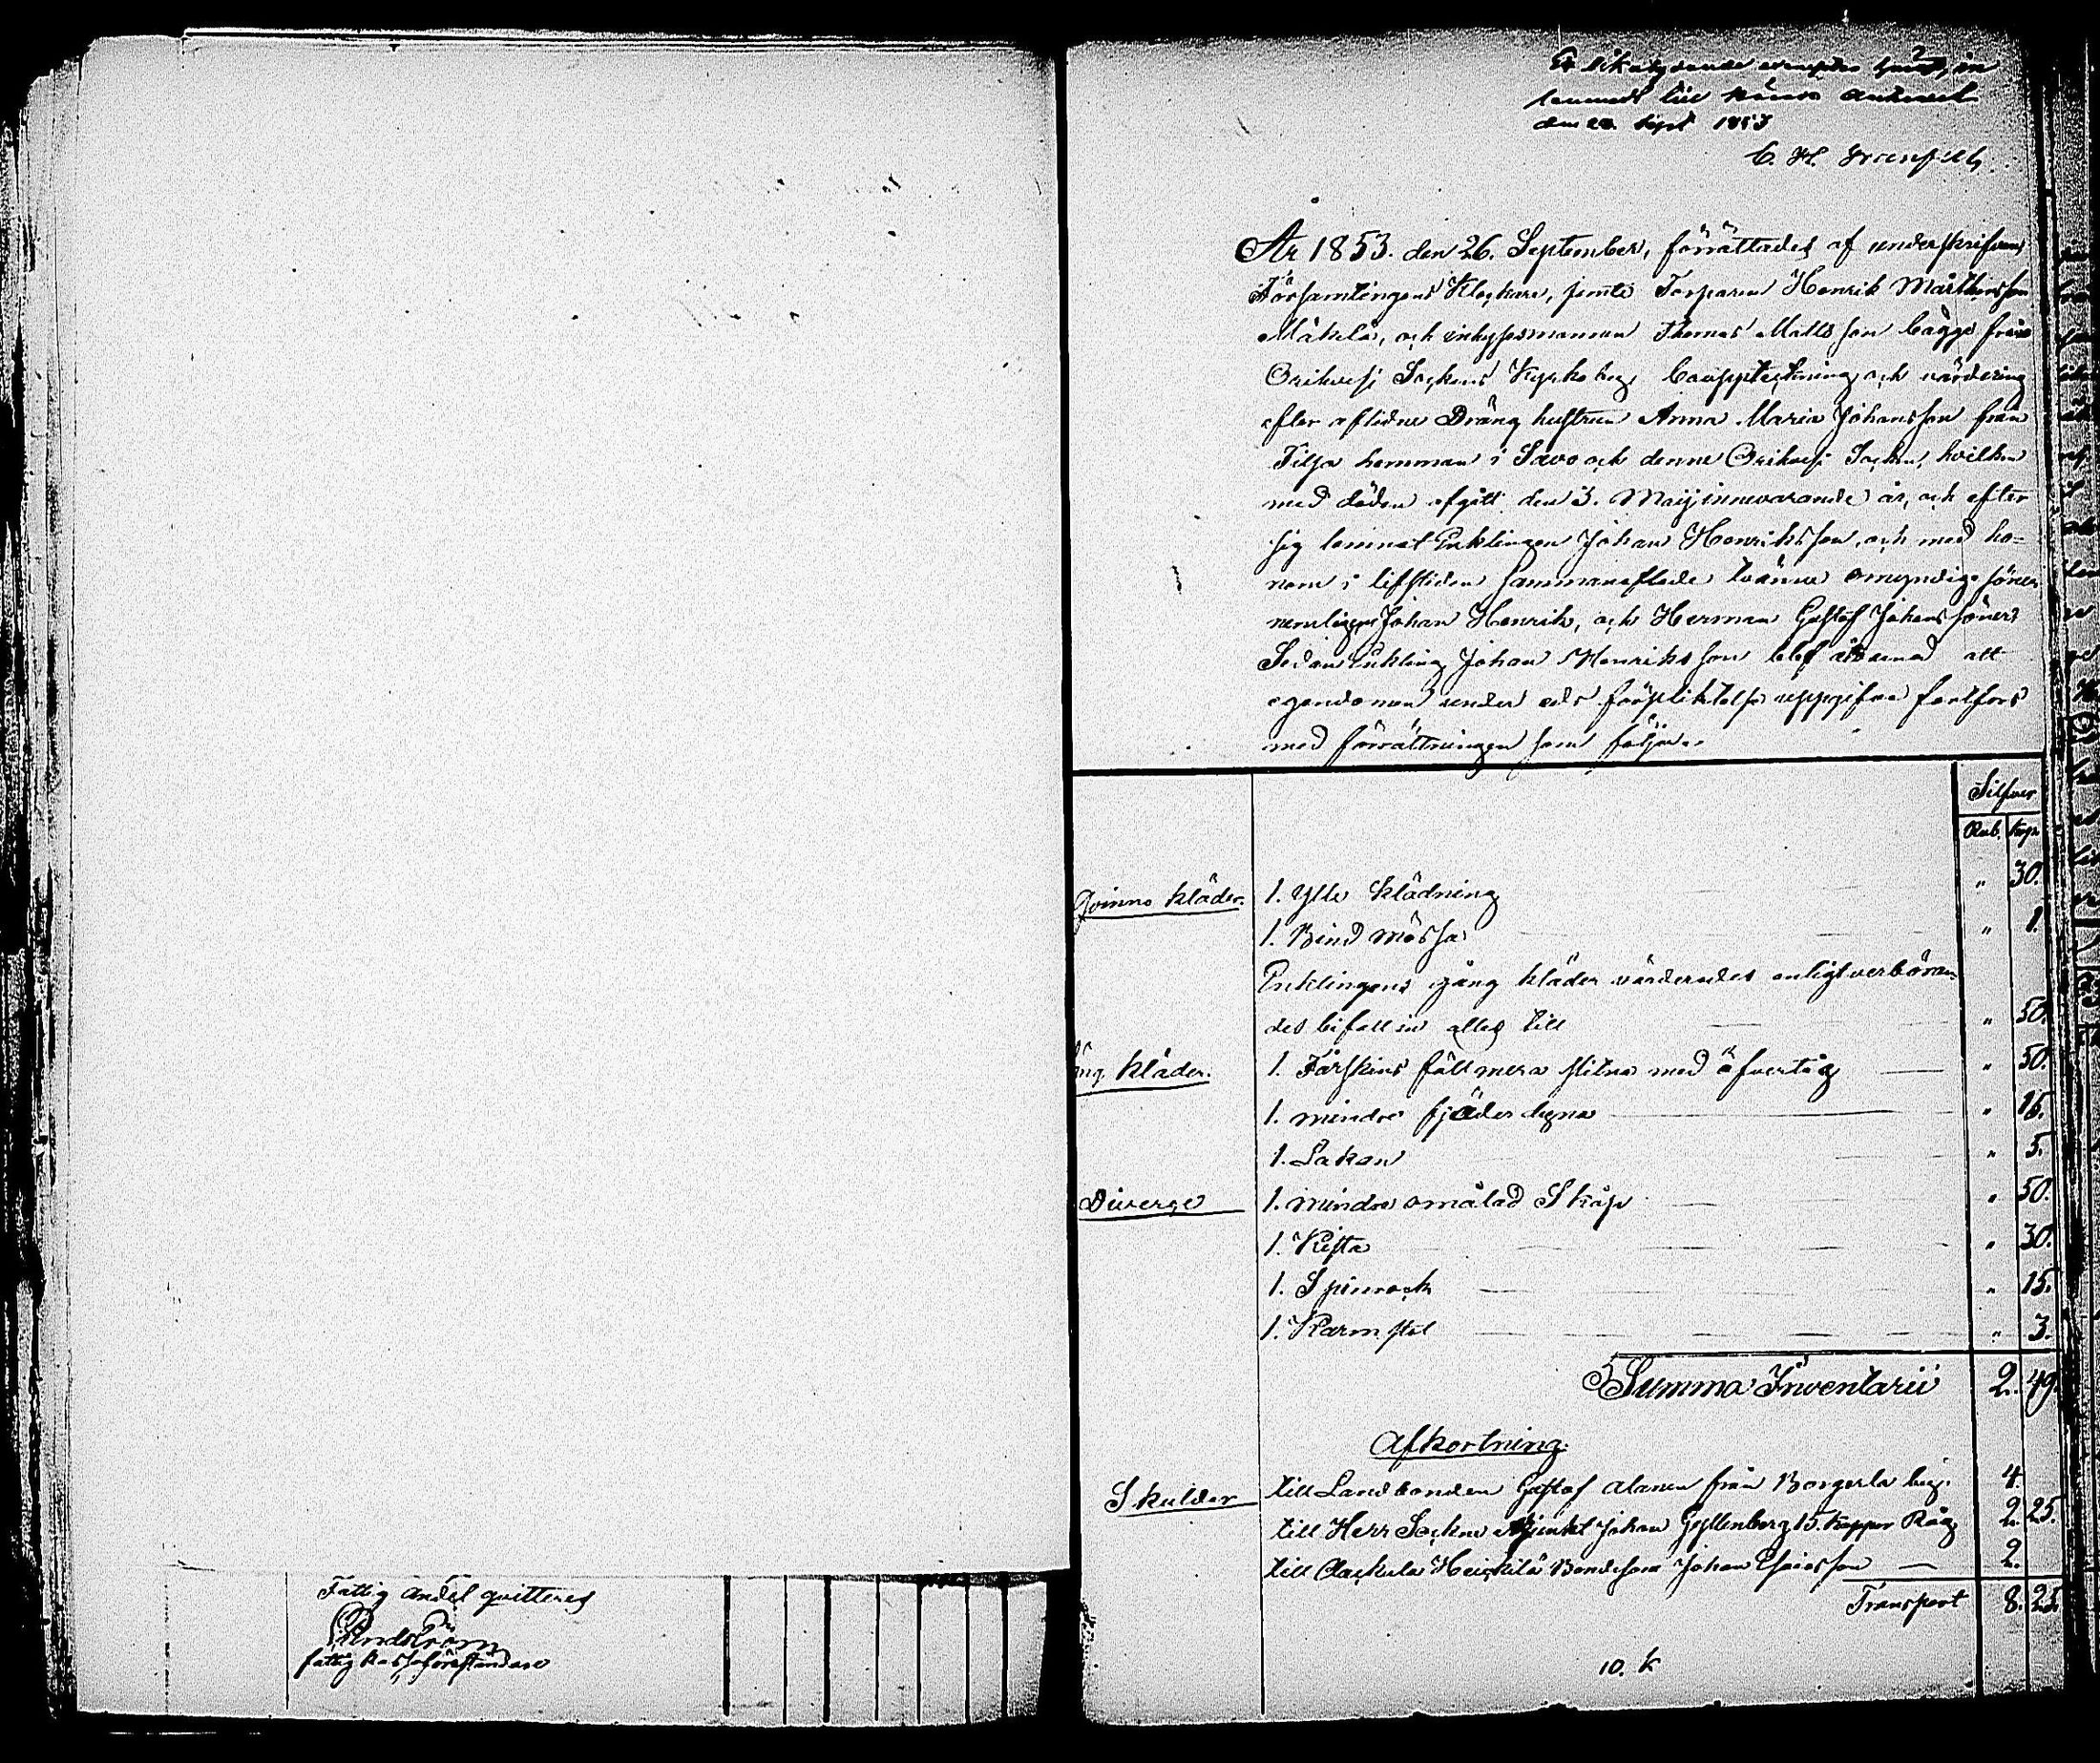 Fattig andel qvitteras
Lindström
fattig kasseföreståndare
Ett lika lydande exemplar häraf, in
lemnadt till
den 28. Sept 1853
C. H.
År 1853. den 26. September, förrättades af underskrifven
Församlingens Klockare, jemte Torparen Henrik Mårthensson
Mäkelä, och inhysesmannen Thomas Mattsson bägge från
Orihvesi Sockens Kyrko by, bouppteckning och värdering
efter aflidne Dräng hustrun Anna Maria Johansson från
Tilsa hemman i Savo och denne Orihvesi Socken, hvilken
med döden afgått den 3. Maij innevarande år, och efter
sig lemnat Enklingen Johan Henriksson, och med ho=
nom i lifstiden sammanaflade tvänne omyndige söner
nemligen Johan Henrik, och Herman Gustaf Johans söner;
Sedan Enkling Johan Henriksson blef åtvarnad att
egendomen under eds förpliktelse uppgifva fortfors
med förrättningen som följer.
Silfver
Rub. Kop.
Qvinno kläder. 1. Ylle klädning " 30.
1. Bind mössa " 1.
Enklingens gång kläder värderades enligt verböran-
des bifall in alles till " 50.
äng. kläder. 1. Fårskins fäll mera slitna med öfvertåg " 50.
1. mindre fjäder dyna " 15.
1. Lakan " 5.
Diverse 1. mindre omålad Skåp " 50.
1. Kista " 30.
1. Spinrock " 15.
1. Karm stol " 3.
Summa Inventarii 2. 49.
Afkortning.
Skulder till Landbonden Gustaf Alanen från by. 4.
till Herr Sockne Adjunkt Johan Gyllenberg 15. kappor Råg 2. 25.
till Heickilä Bondeson Johan Esaiasson — 2.
Transport 8. 25.
10. k